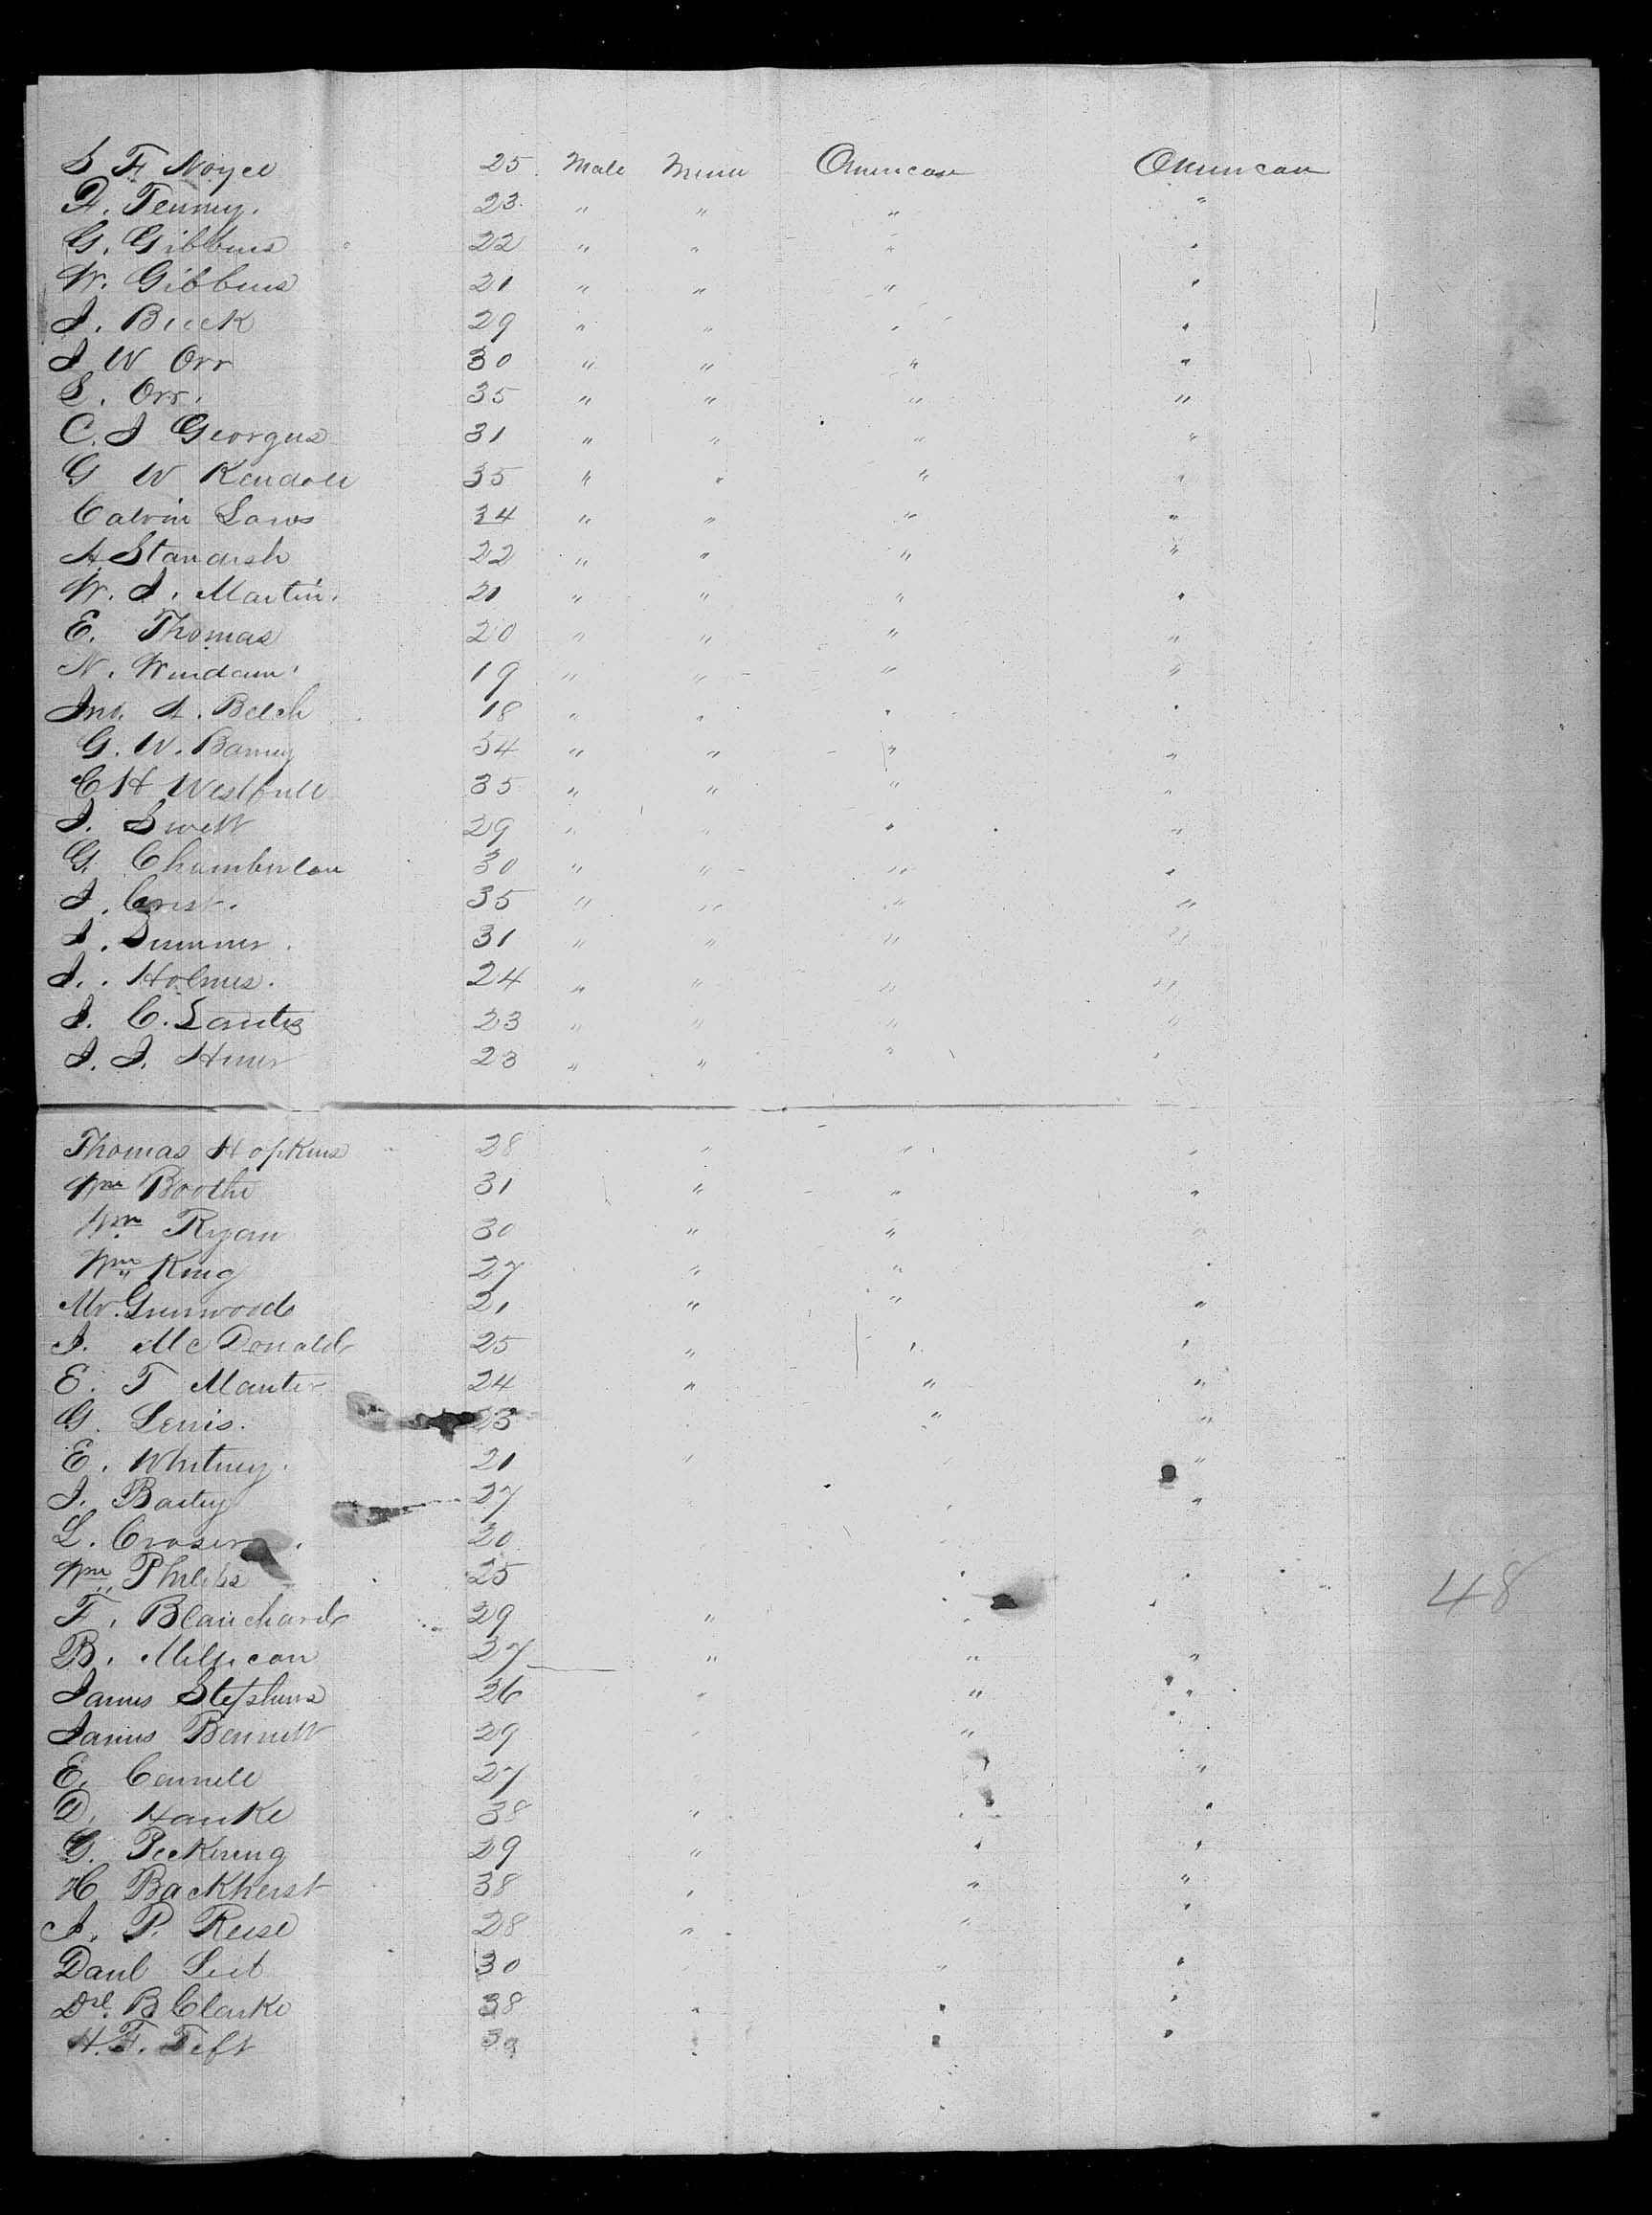 S F Noyce 25 Male Miner American American
F. Tenney. 23 " " " "
G. Gibbens 22 " " " "
W. Gibbens 21 " " " "
J. Buck 29 " " " "
J W Orr 30 " " " "
S. Orr. 35 " " " "
C. J Georgus 31 " " " "
G W Kendall 35 " " " "
Calvin Laws 34 " " " "
A Standish 22 " " " "
W. J. Martin. 21 " " " "
E. Thomas 20 " " " "
N. Windam 19 " " " "
Jno. A. Belch 18 " " " "
G. W. Barney 34 " " " "
C H 35 " " " "
J. Swett 29 " " " "
G. Chamberlan 30 " " " "
J. Crist. 35 " " " "
J. Sumner. 31 " " " "
J. Holmes. 24 " " " "
J. C. 23 " " " "
J. J. 23 " " " "
Thomas Hopkins 28 " " "
Wm Boothe 31 " " "
Wm Ryan 30 " " "
Wm King 27 " " "
Mr. Grenwood 21 " " "
J. McDonald 25 " " "
E. T Manter 24 " " "
G. Lewis. 23 " "
E. Whitney. 21 " "
J. Bailey 27 "
L. 20
Wm Phelps 25 " "
48
F. Blanchard 29 " "
B. Millican 27 " " "
James Stephens 36 " " "
James Bennett 29 " " "
E. Connell 27 "
D. Hanke 38 " "
G. Pickering 29 " " "
H Backherst 38 " " "
J. P. Reese 28 " " "
Danl 30 " "
Dl. B Clarke 38 " " "
H. F. Teft 39 " " "